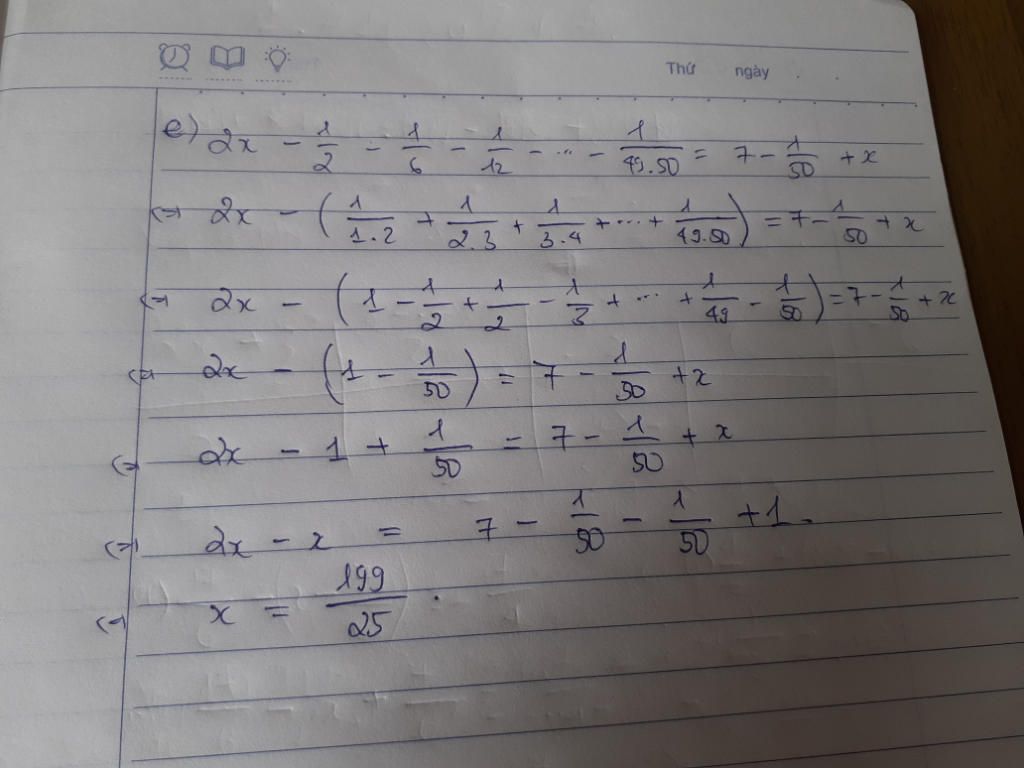 Thứ ngày
e) 2x - 1/2 - 1/6 - 1/12 - ... - 1/49.50 = 7 - 1/50 + x
<=> 2x - (1/1.2 + 1/2.3 + 1/3.4 + ... + 1/49.50) = 7 - 1/50 + x
<=> 2x - (1 - 1/2 + 1/2 - 1/3 + ... + 1/49 - 1/50) = 7 - 1/50 + x
<=> 2x - (1 - 1/50) = 7 - 1/50 + x
<=> 2x - 1 + 1/50 = 7 - 1/50 + x
<=> 2x - x = 7 - 1/50 - 1/50 + 1.
<=> x = 199/25.